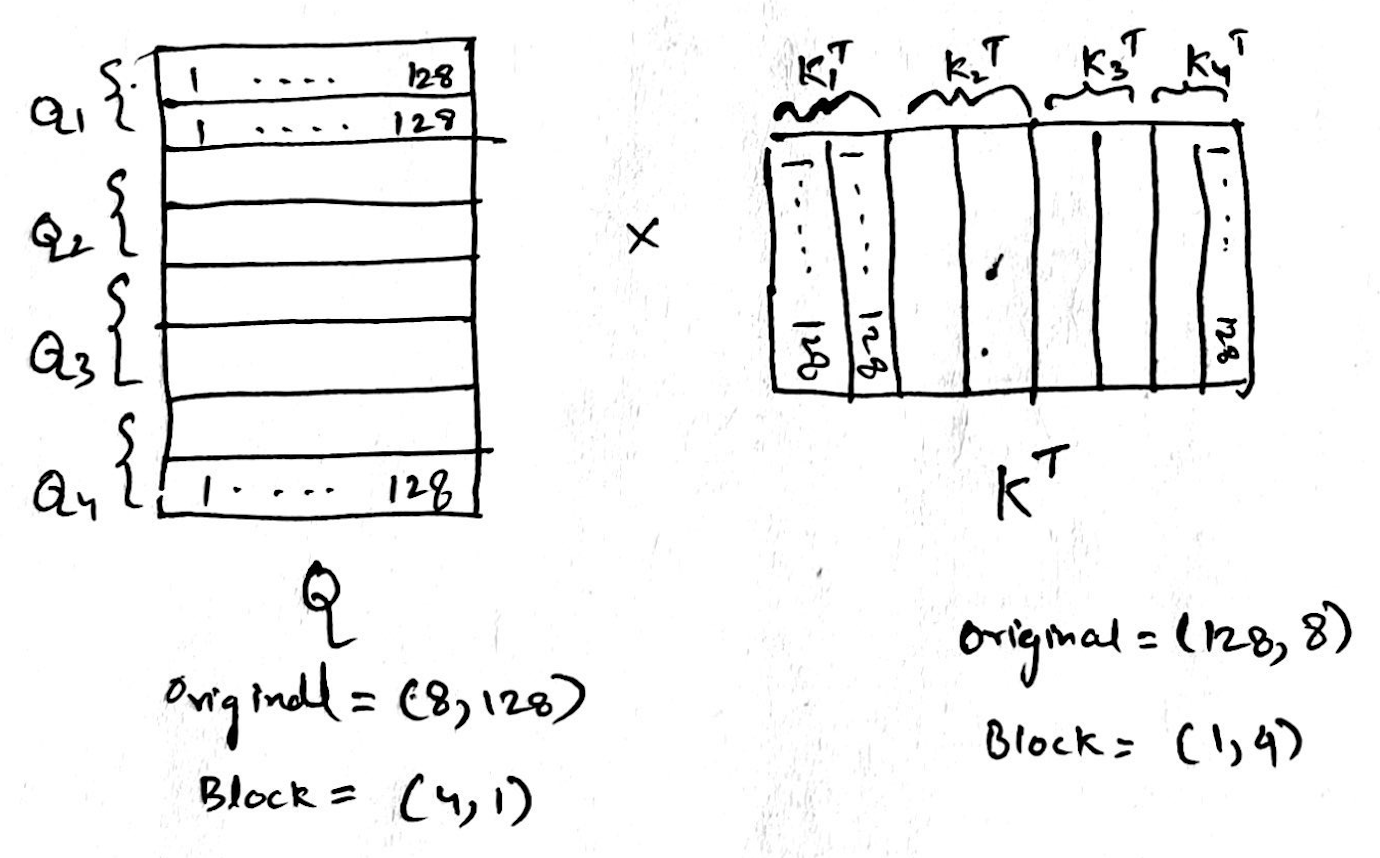 Q1 { 1 .... 128
1 .... 128
Q2 {
Q3 {
Q4 { 1 ..... 128
Q
Original = (8, 128)
Block = (4, 1)
×
K1^T K2^T K3^T K4^T
1 1 1
128 128 128
K^T
Original = (128, 8)
Block = (1, 4)